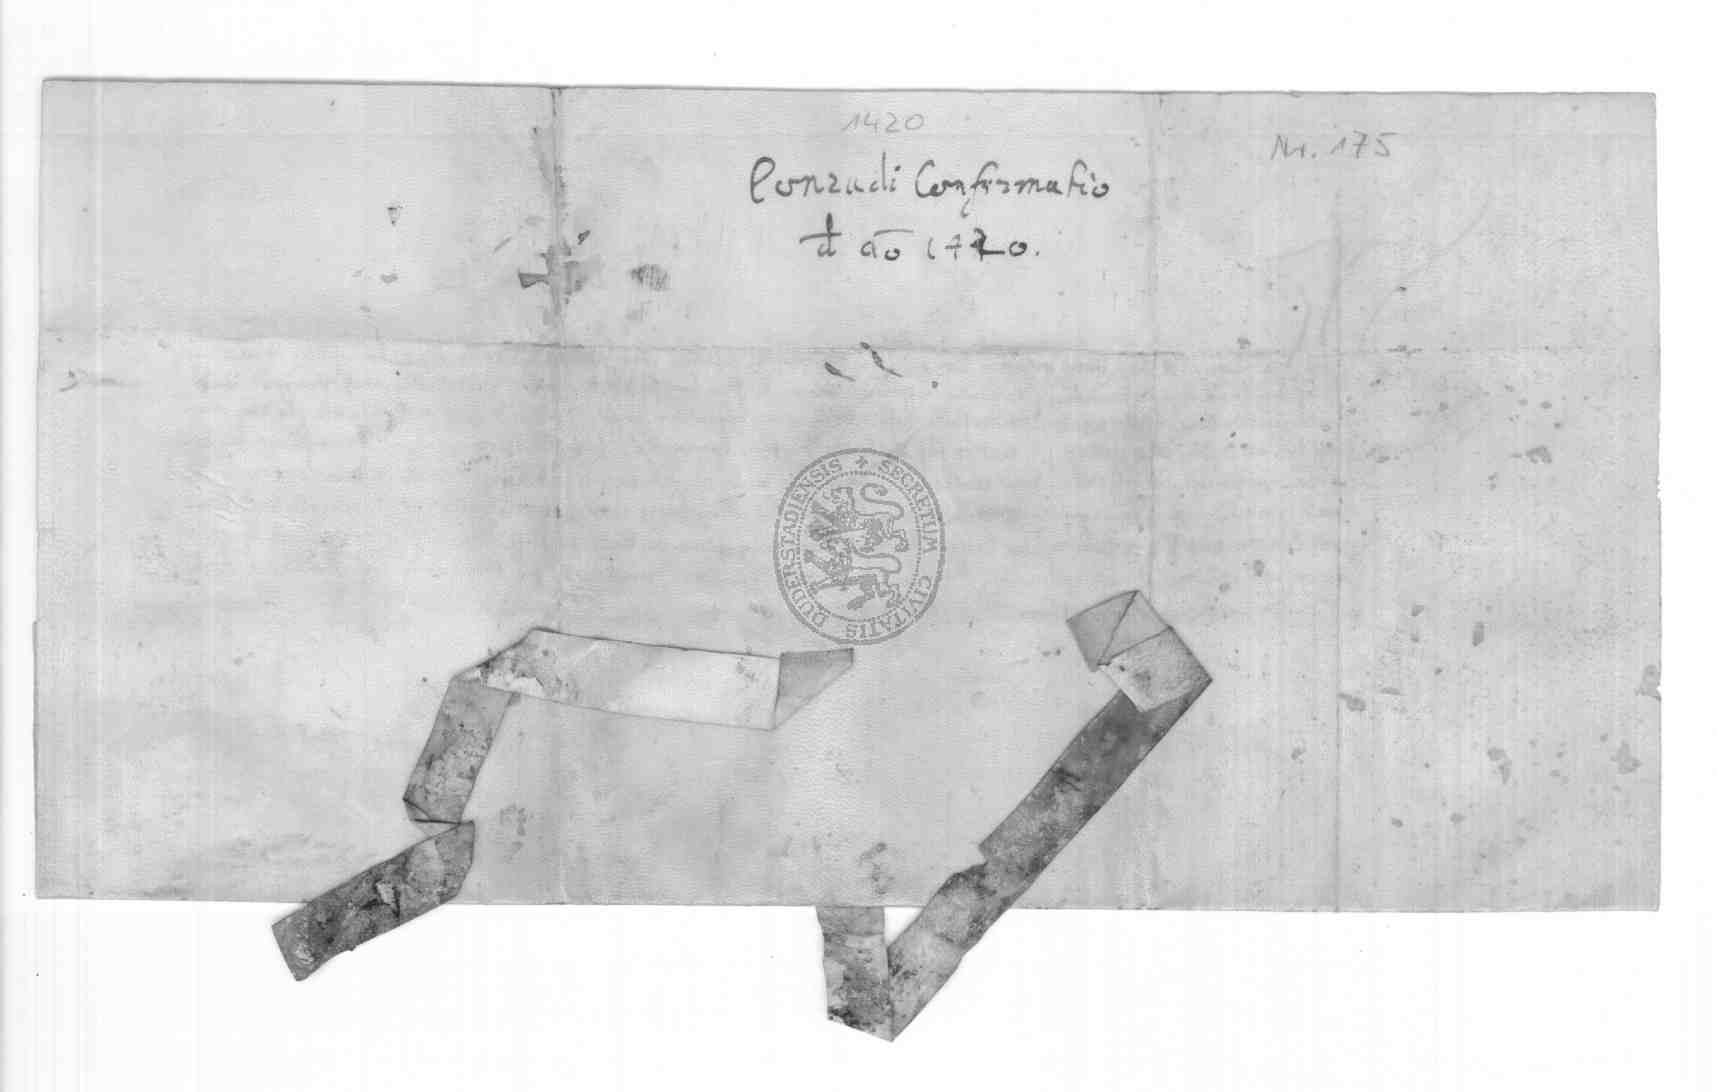 1420
Nr. 175
Conradi Confirmatio
d ao 1420.
+ SECRETUM CIVITATIS DUDERSTADIENSIS